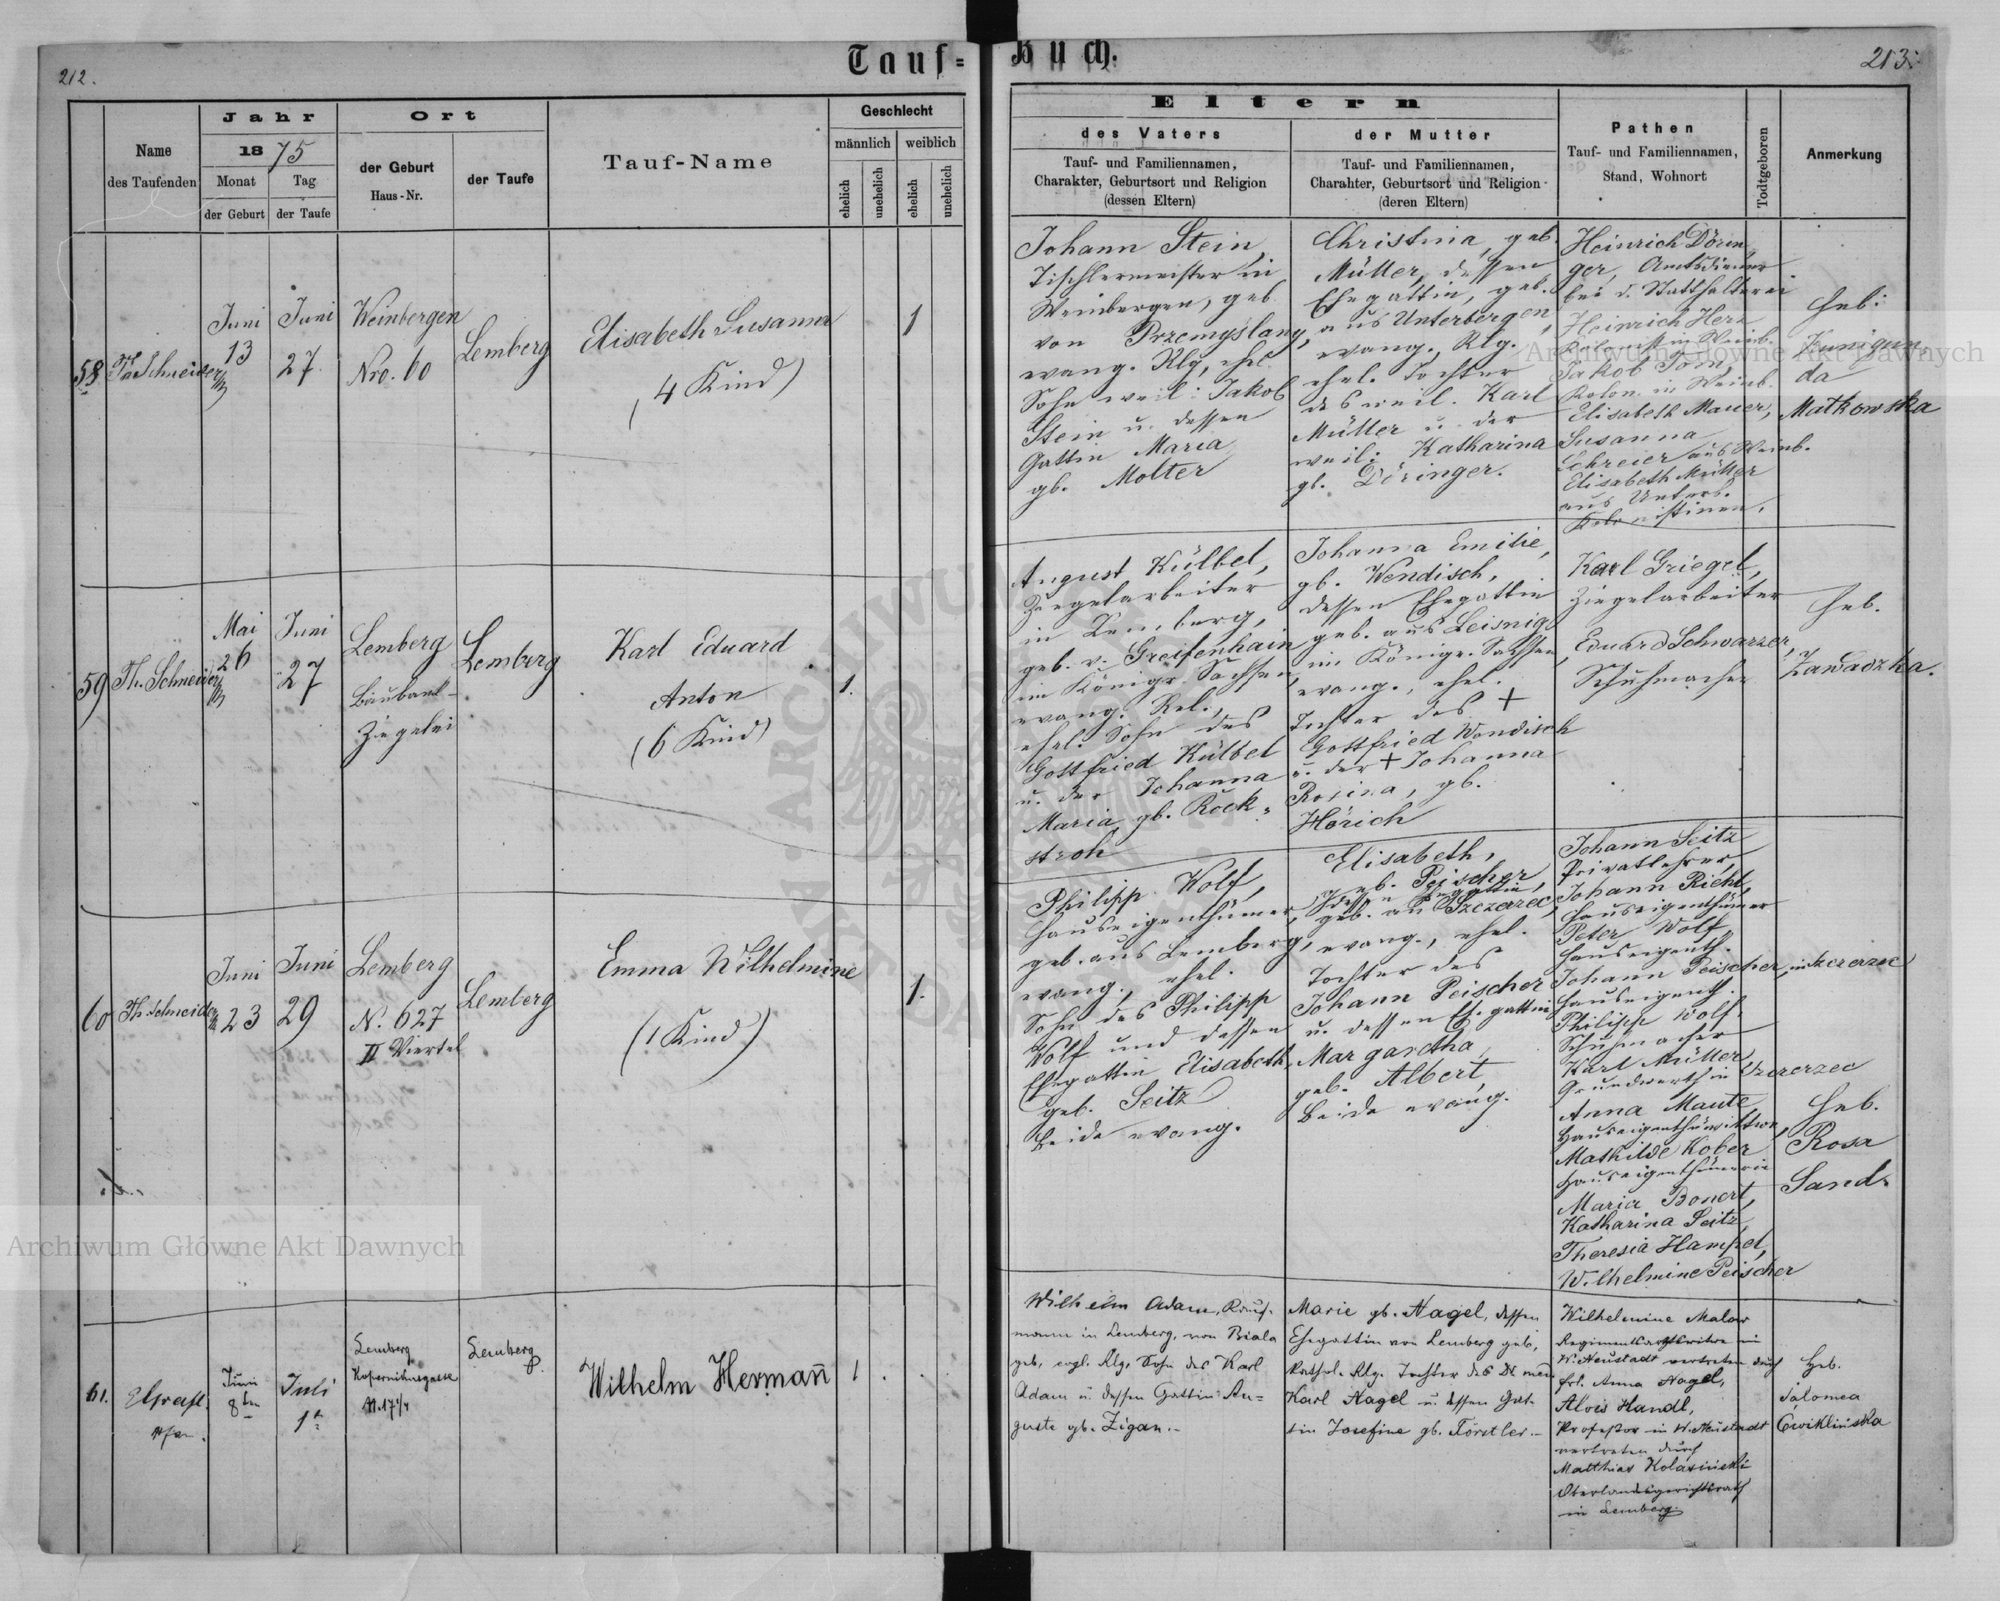 212.
Tauf-
Buch.
213.
Name
des Taufenden
Jahr
1875
Monat
der Geburt
Tag
der Taufe
Ort
der Geburt
Haus-Nr.
der Taufe
Tauf-Name
Geschlecht
männlich
weiblich
ehelich
unehelich
ehelich
unehelich
Eltern
des Vaters
Tauf- und Familiennamen,
Charakter, Geburtsort und Religion
(dessen Eltern)
der Mutter
Tauf- und Familiennamen,
Charakter, Geburtsort und Religion
(deren Eltern)
Pathen
Tauf- und Familiennamen,
Stand, Wohnort
Todtgeboren
Anmerkung
58
Th. Schneider
Juni
13
Juni
27
Weinbergen
Nro. 60
Lemberg
Elisabeth Susanna
(4 Kind)
1
Johann Stein,
Tischlermeister in
Weinbergen, geb.
von Przemyślany,
evang. Rlg, ehel.
Sohn weil: Jakob
Stein u. dessen
Gattin Maria
gb. Molter
Christina, geb.
Müller, dessen
Ehegattin, geb.
aus Unterbergen,
evang. Rlg.
ehel. Tochter
des weil. Karl
Müller u. der
weil: Katharina
gb. Döringer.
Heinrich Dörin
ger, Amtsdiener
bei d. Statthalterei
Heinrich Herz
Kolonist in Weinb.
Jakob Tom,
Kolon. in Weinb.
Elisabeth Mauer,
Susanna
Schreier aus Weinb.
Elisabeth Müller
aus Unterb.
Kolonistinen.
Heb:
Kunigun
da
Matkowska
59
Th. Schneider
Mai
26
Juni
27
Lemberg
Ziegelei
Lemberg
Karl Eduard
Anton
(6 Kind)
1.
August Külbel,
Ziegelarbeiter
in Lemberg,
geb. v. Greifenhain
im Königr. Sachsen,
evang. Rel.,
ehel. Sohn des
Gottfried Külbel
u. der Johanna
Maria, gb. Rock-
stroh
Johanna Emilie,
gb. Wendisch,
dessen Ehegattin
geb. aus Leisnig
im Königr. Sachsen,
evang., ehel.
Tochter des +
Gottfried Wendisch
u. der + Johanna
Rosina, gb.
Hörich
Karl Griegel,
Ziegelarbeiter
Eduard Schwarzer,
Schuhmacher
Heb.
Zawadzka.
60
Th. Schneider
Juni
23
Juni
29
Lemberg
N. 627
II Viertel
Lemberg
Emma Wilhelmine
(1 Kind)
1.
Philipp Wolf,
Hauseigenthümer,
geb. aus Lemberg,
evang., ehel.
Sohn des Philipp
Wolf und dessen
Ehegattin Elisabeth,
geb. Seitz
beide evang.
Elisabeth,
geb. Peischer,
dessen Ehegattin,
geb. aus Szczerzec,
evang., ehel.
Tochter des
Johann Peischer
u. dessen Eh.gattin
Margaretha,
geb. Albert,
beide evang.
Johann Seitz
Privatlehrer
Johann Richt,
Hauseigenthümer
Peter Wolf
Hauseigenth.
Johann Peischer, in Szczerzec
Hauseigenth.
Philipp Wolf,
Schuhmacher
Karl Müller,
Grundwirth in Szczerzec
Anna Maute
Mathilde Kober
Hauseigenthümerin
Maria Bonert,
Katharina Seitz,
Theresia Hampel,
Wilhelmine Peischer
Heb.
Rosa
Sand.
61.
Pfar.
Juni
8ten
Juli
1ten
Lemberg
Kopernikusgasse
N. 17 1/4
Lemberg
Wilhelm Hermañ
1
Wilhelm Adam, Kauf-
mann in Lemberg, von Biala
geb, evgl. Rlg, Sohn des Karl
Adam u. dessen Gattin Au-
guste gb. Zigan.-
Marie gb. Nagel, dessen
Ehegattin von Lemberg geb,
kathol. Rlg. Tochter des Dr med
Karl Nagel u. dessen Gat-
tin Josefine gb. Förstler.-
Wilhelmine Malar
in
W. Neustadt vertreten durch
Frl. Anna Nagel,
Alois Handl,
Professor in W. Neustadt
vertreten durch
Matthias Kolasiński
Oberlandesgerichtsrath
in Lemberg.
Heb.
Salomea
Cwiklińska
Archiwum Główne Akt Dawnych
Archiwum Główne Akt Dawnych